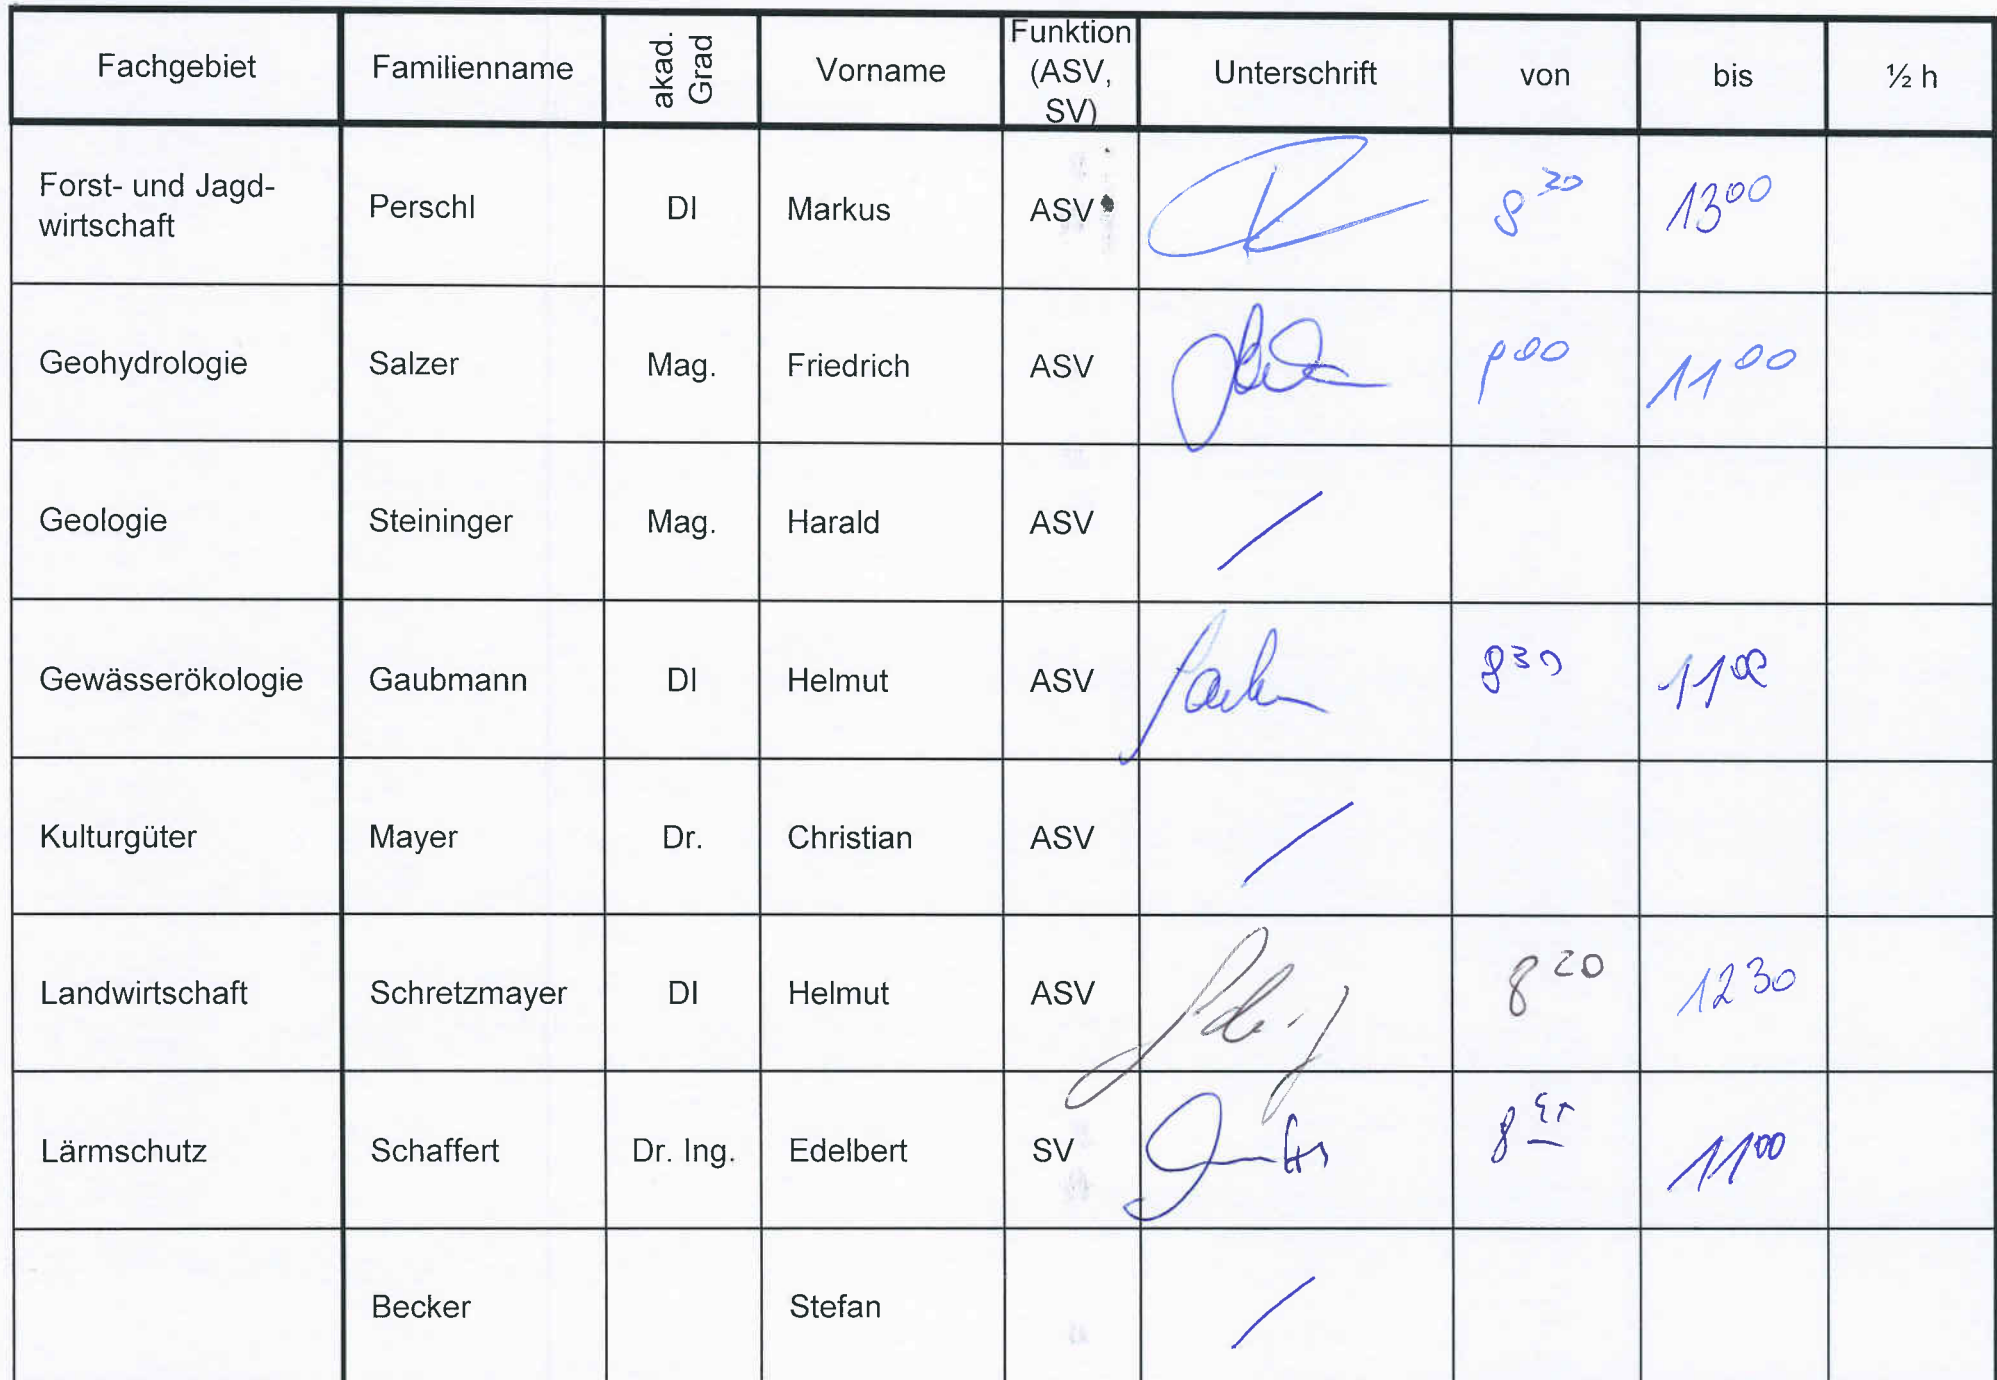 Fachgebiet Familienname akad. Grad Vorname Funktion (ASV, SV) Unterschrift von bis ½ h
Forst- und Jagd-
wirtschaft Perschl DI Markus ASV 8 20 13 00
Geohydrologie Salzer Mag. Friedrich ASV 11 00
Geologie Steininger Mag. Harald ASV /
Gewässerökologie Gaubmann DI Helmut ASV 8 30 11 00
Kulturgüter Mayer Dr. Christian ASV /
Landwirtschaft Schretzmayer DI Helmut ASV 8 20 12 30
Lärmschutz Schaffert Dr. Ing. Edelbert SV 11 00
Becker Stefan /